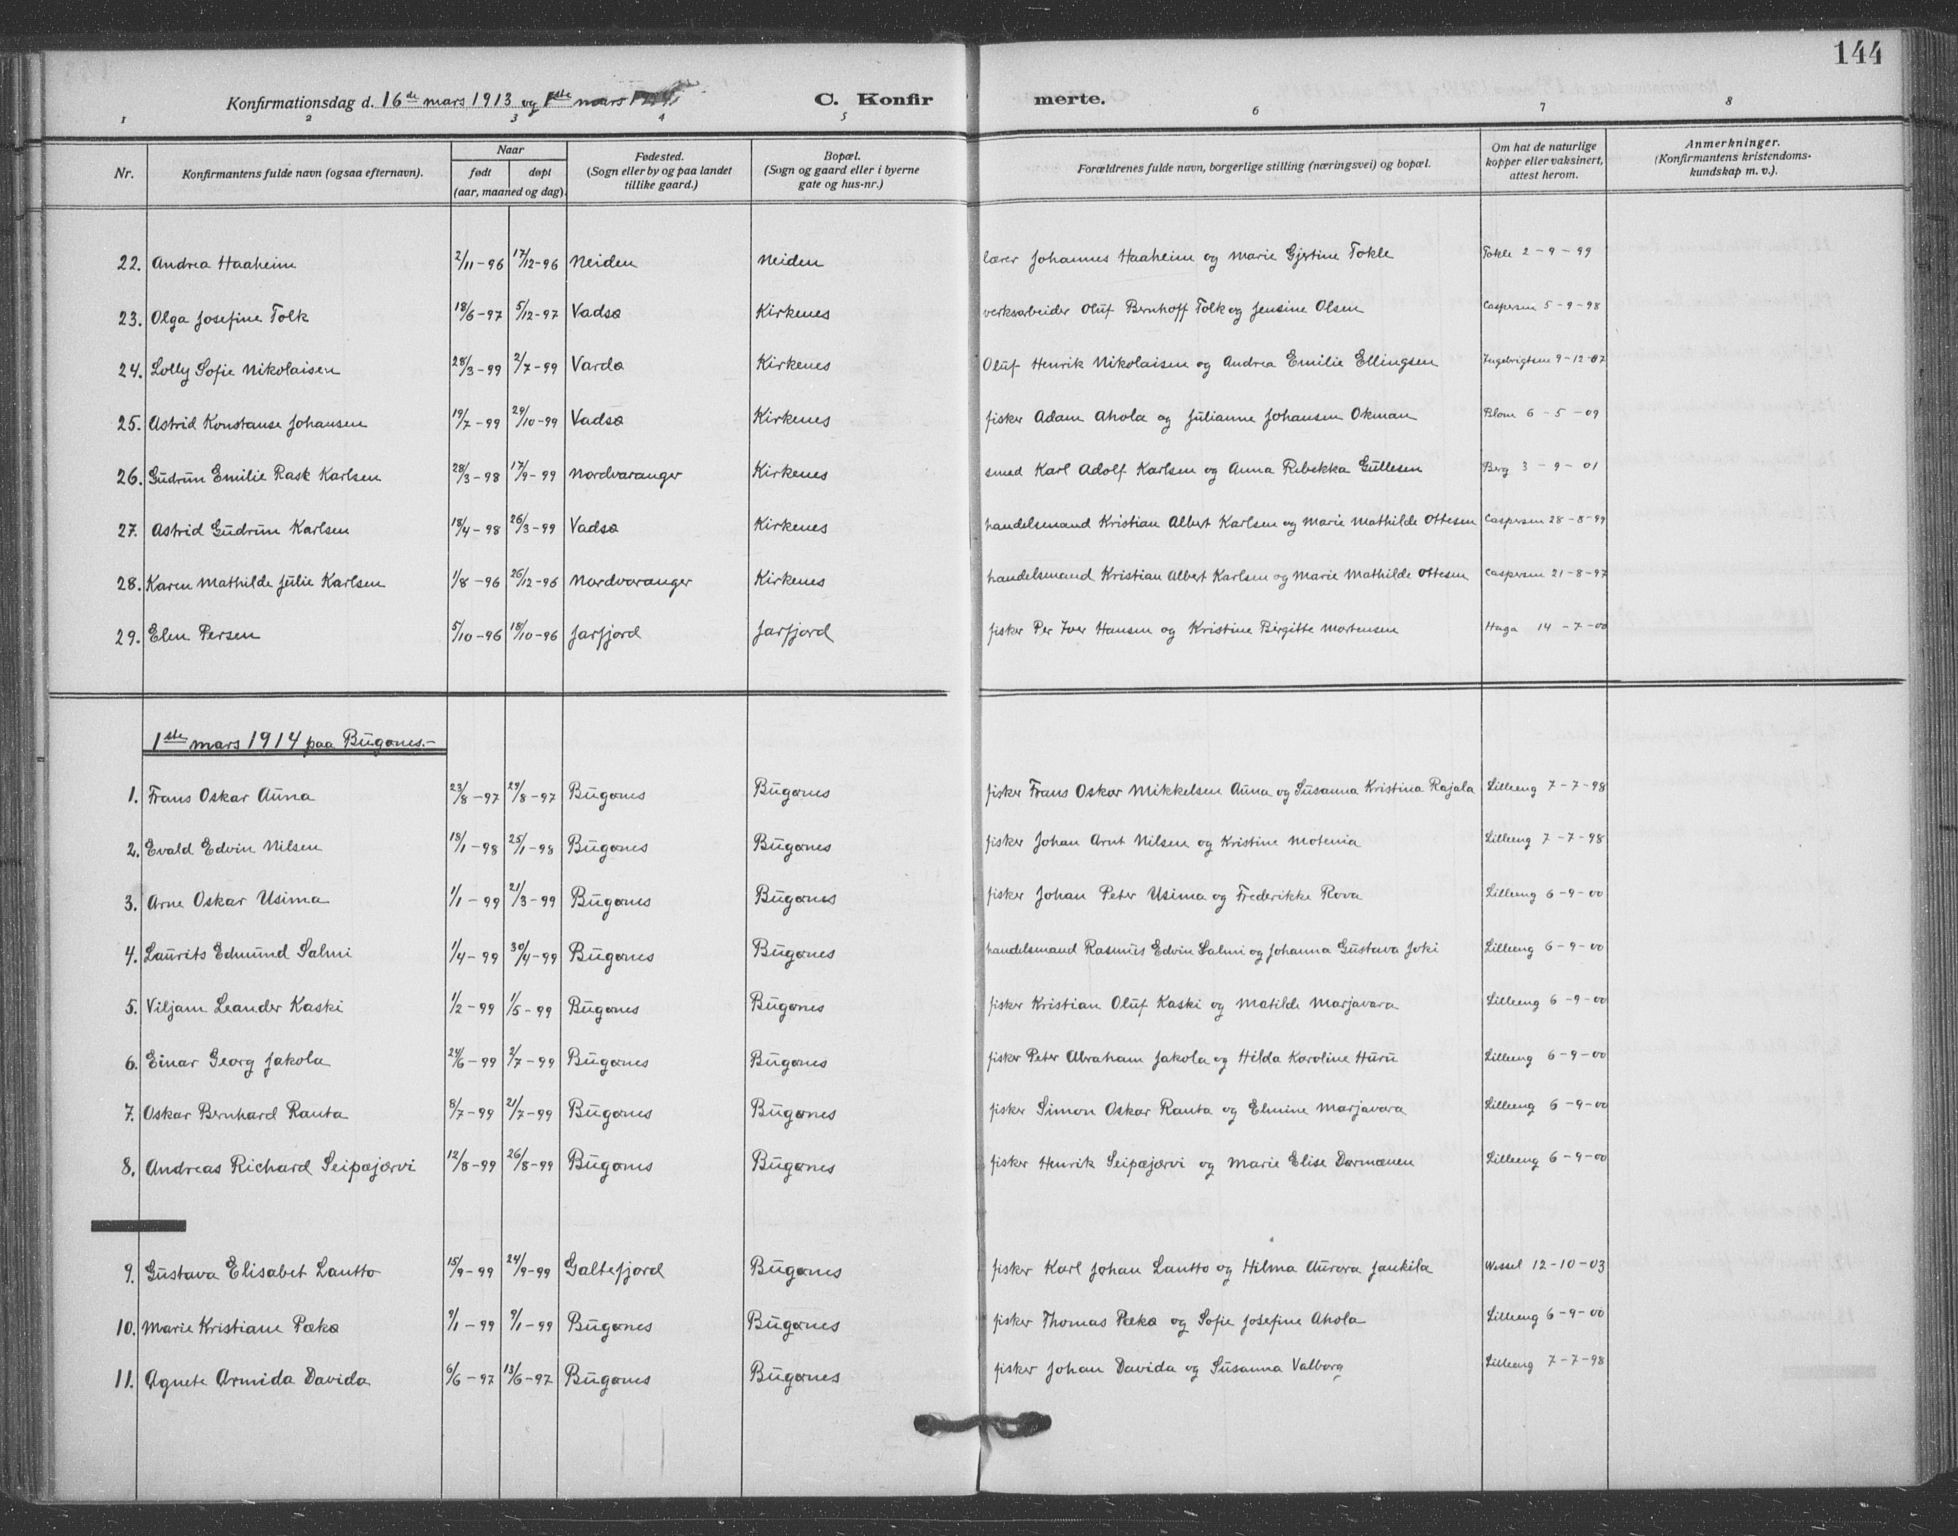 144
Konfirmationsdag d. 16de mars 1913 og 1ste mars C. Konfirmerte.
1 2 3 4 5 6 7 8
Nr. Konfirmantens fulde navn (ogsaa efternavn). Naar født døpt (aar, maaned og dag). Fødested. (Sogn eller by og paa landet tillike gaard.) Bopæl. (Sogn og gaard eller i byerne gate og hus-nr.) Forældrenes fulde navn, borgerlige stilling (næringsvei) og bopæl. Om hat de naturlige kopper eller vaksinert, attest herom. Anmerkninger. (Konfirmantens kristendomskundskap m. v.).
22. Andrea Haaheim 2/11-96 17/12-96 Neiden Neiden lærer Johannes Haaheim og Marie Gjertine Tokle Tokle 2-9-99
23. Olga Josefine Tolk 18/6-97 5/12-97 Vadsø Kirkenes verksarbeider Oluf Bernhoff Tolk og Jensine Olsen Caspersen 5-9-98
24. Lolly Sofie Nikolaisen 28/3-99 2/7-99 Vardø Kirkenes Oluf Henrik Nikolaisen og Andrea Emilie Ellingsen Ingebrigtsen 9-12-07
25. Astrid Konstanse Johansen 19/7-99 29/10-99 Vadsø Kirkenes fisker Adam Ahola og Julianne Johansen Okman Blom 6-5-09
26. Gudrun Emilie Rask Karlsen 28/3-98 17/9-99 Nordvaranger Kirkenes smed Karl Adolf Karlsen og Anna Rebekka Gullesen Berg 3-9-01
27. Astrid Gudrun Karlsen 18/4-98 26/3-99 Vadsø Kirkenes handelsmand Kristian Albert Karlsen og Marie Mathilde Ottesen Caspersen 28-8-99
28. Karen Mathilde Julie Karlsen 1/8-96 26/12-96 Nordvaranger Kirkenes handelsmand Kristian Albert Karlsen og Marie Mathilde Ottesen Caspersen 21-8-97
29. Elen Persen 5/10-96 18/10-96 Jarfjord Jarfjord fisker Per Iver Hansen og Kristine Birgitte Mortensen Haga 14-7-00
1ste mars 1914 paa Bugønes.-
1. Frans Oskar Auna 23/8-97 29/8-97 Bugønes Bugønes fisker Frans Oskar Mikkelsen Auna og Susanna Kristina Rajala Lilleeng 7-7-98
2. Evald Edvin Nilsen 18/1-98 25/1-98 Bugønes Bugønes fisker Johan Arnt Nilsen og Kristine Motenia Lilleeng 7-7-98
3. Arne Oskar Usima 1/1-99 21/3-99 Bugønes Bugønes fisker Johan Peter Usima og Frederikke Rova Lilleeng 6-9-00
4. Laurits Edmund Salmi 1/4-99 30/4-99 Bugønes Bugønes handelsmand Rasmus Edvin Salmi og Johanna Gustava Joki Lilleeng 6-9-00
5. Viljam Leander Kaski 1/2-99 1/5-99 Bugønes Bugønes fisker Kristian Oluf Kaski og Matilde Marjavara Lilleeng 6-9-00
6. Einar Georg Jakola 24/6-99 2/7-99 Bugønes Bugønes fisker Peter Abraham Jakola og Hilda Karoline Huru Lilleeng 6-9-00
7. Oskar Bernhard Ranta 8/7-99 21/7-99 Bugønes Bugønes fisker Simon Oskar Ranta og Elmine Marjavara Lilleeng 6-9-00
8. Andreas Richard Seipæjærvi 12/8-99 26/8-99 Bugønes Bugønes fisker Henrik Seipæjærvi og Marie Elise Dørmænen Lilleeng 6-9-00
9. Gustava Elisabet Lantto 15/9-99 24/9-99 Galtefjord Bugønes fisker Karl Johan Lantto og Hilma Aurora Jankila Wessel 12-10-03
10. Marie Kristiane Pækø 9/1-99 9/1-99 Bugønes Bugønes fisker Thomas Pækø og Sofie Josefine Ahola Lilleeng 6-9-00
11. Agnete Armida Davida 6/6-97 13/6-97 Bugønes Bugønes fisker Johan Davida og Susanna Valborg Lilleeng 7-7-98